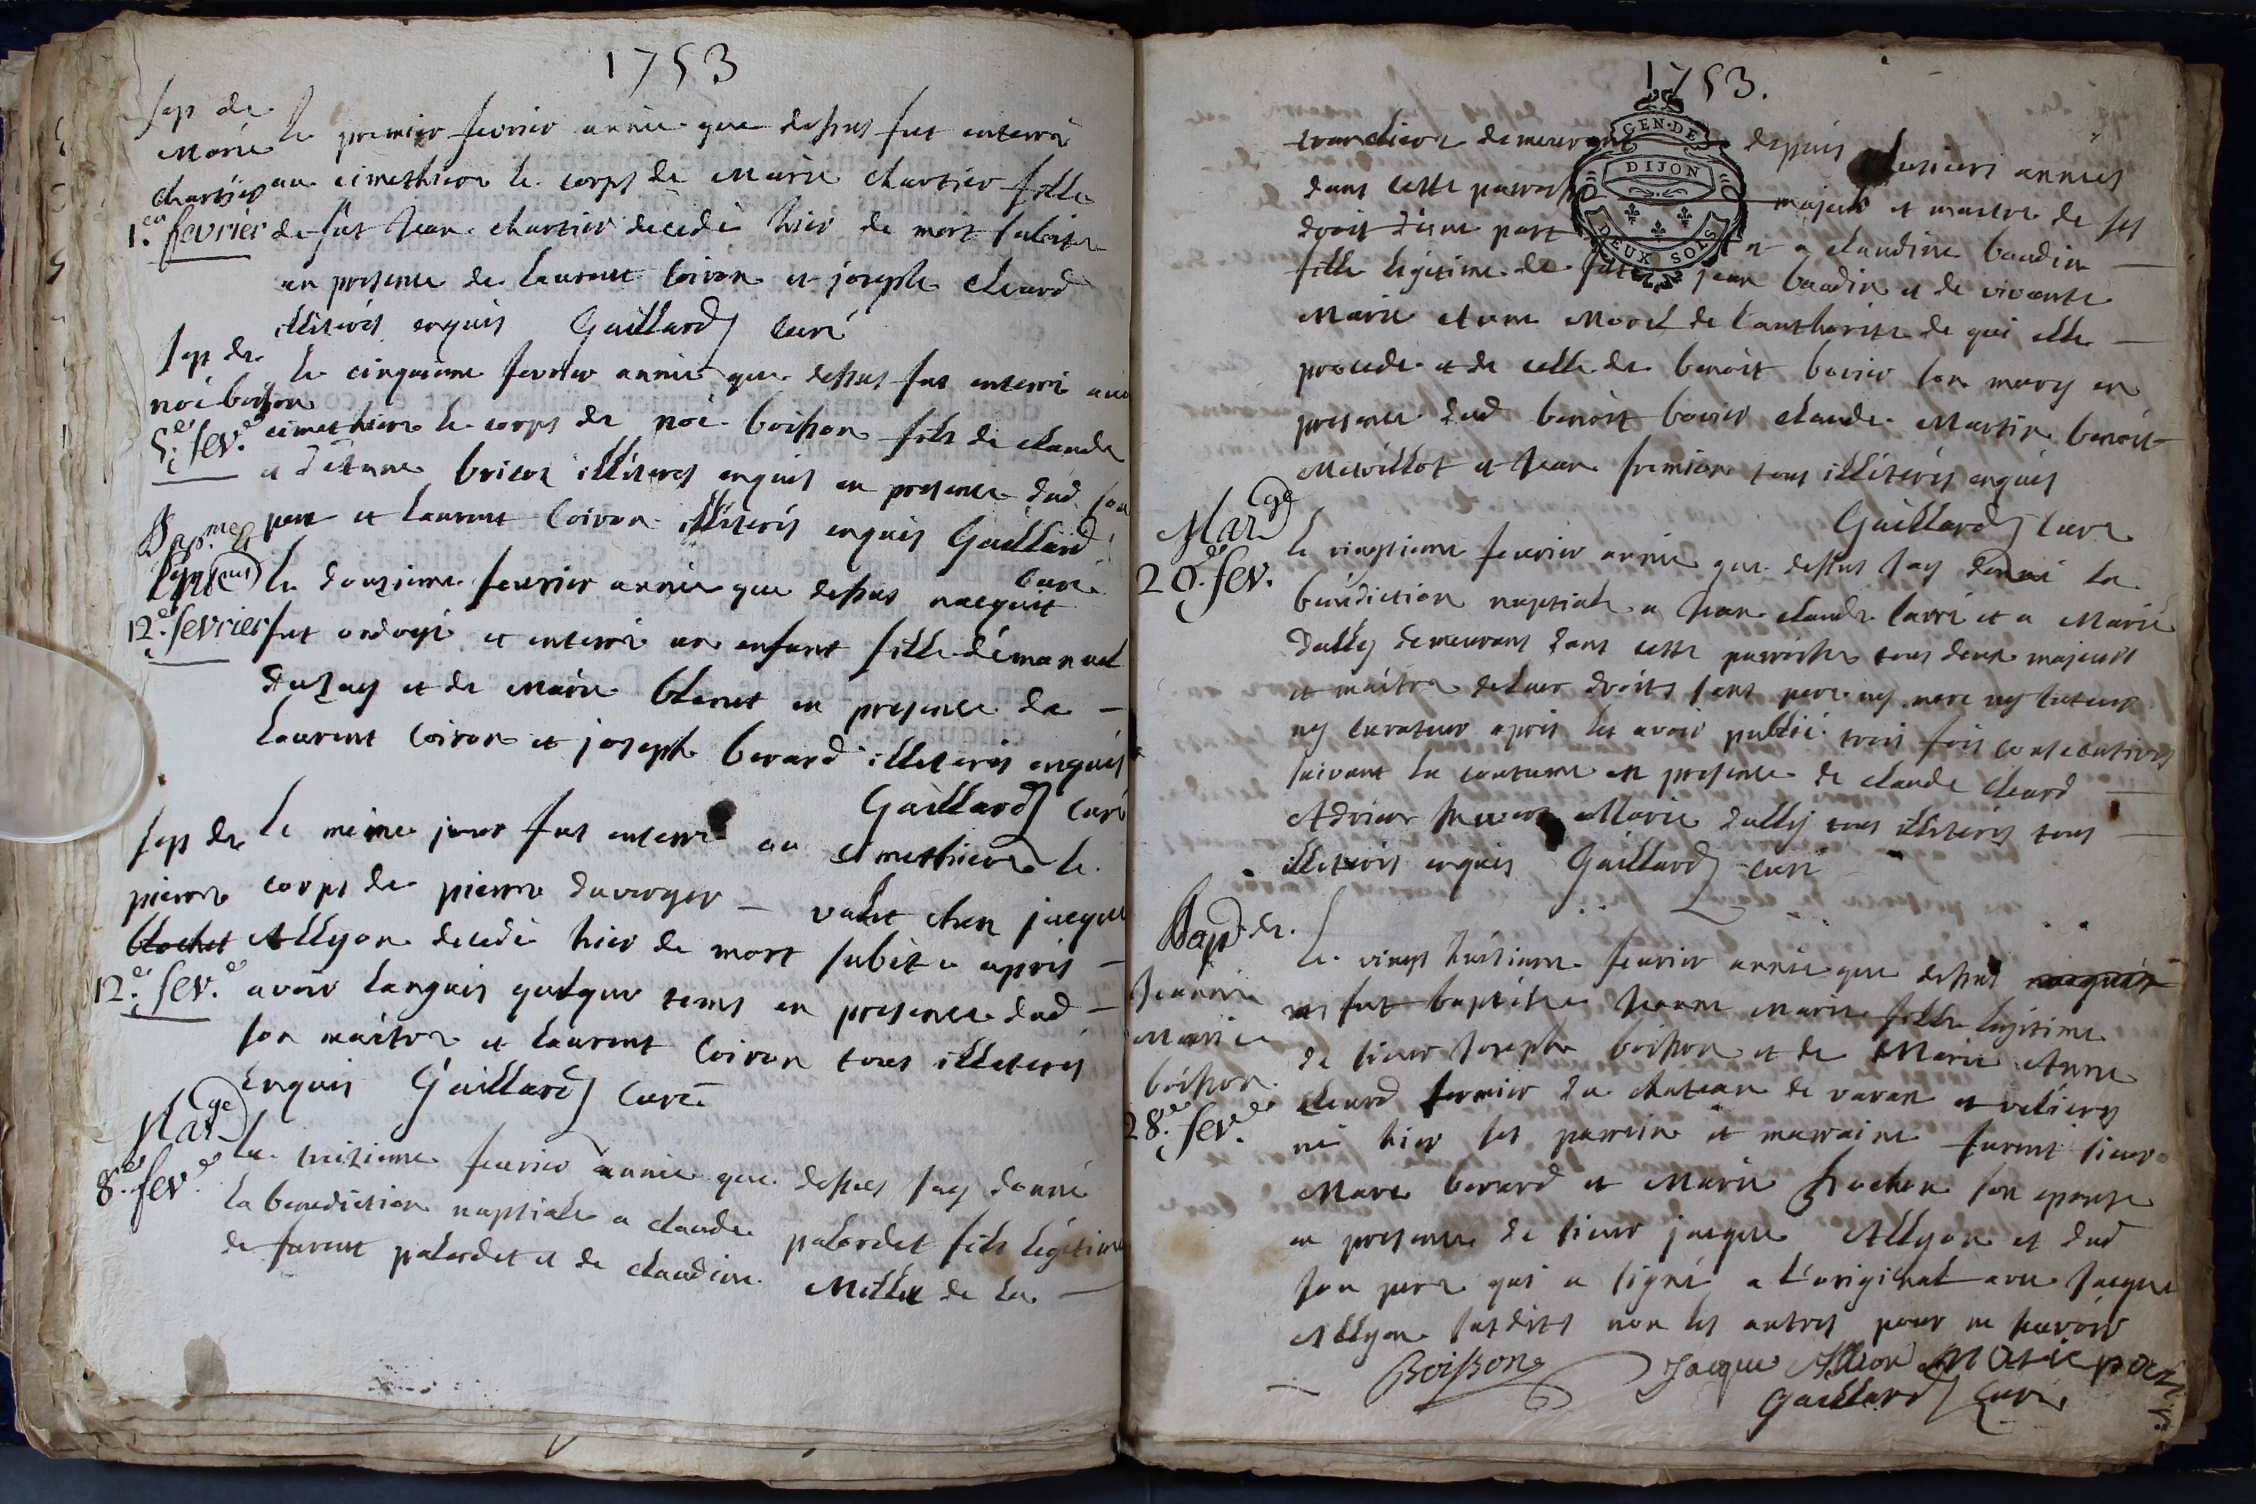 1753
sep de Marie chartier
1.er fevrier
le premier fevrier année que dessus fut enterré
au cimethiere le corps de Marie chartier fille
de fut Jean chartier decedé hier de mort subite
en presence de laurent Coiron et joseph cleard
illiterés enquis Gaillard curé
sep de noé boisson
5.e fev.
le cinquieme fevrier année que dessus fut enterré au
cimethiere le corps de noé boisson fils de claude
et d'étienne illiteres enquis en presence dud son
pere et laurent Coiron illiterés enquis Gaillard
curé
Bap.me et sep
12.e fevrier
le douzieme fevrier année que dessus nacquit
fut ondoyé et enterré un enfant fille d'émanuel
duzay et de Marie en presence de
laurent Coiron et joseph berard illeterés enquis
Gaillard curé
sep de pierre
12.e fev.
le même jour fut enterré au cimethiere le
corps de pierre duverger valet chez jacque
Allyon decedé hier de mort subite apres
avoir languis quelque tems en presence dud
son maitre et laurent Coiron tous illeterés
Enquis Gaillard Curé
Mar.ge
8.e fev.
le huitieme fevrier année que dessus j'ay donné
la benediction nuptiale a claude palordet fils légitime
de furent palordet et de claudine Millet de la
1753.
GEN. DE DIJON
DEUX SOLS
demeurant depuis plusieurs années
dans cette parroisse majeur et maitre de ses
droit d'une part et a claudine baudin
fille legitime de jean baudin et de vivante
Marie Anne Morel de l'authorité de qui elle
procede et de celle de benoit boivier son mary en
presence dud benoit boivier claude Martin benoit
Mevillot et Jean tous illiterés enquis
Gaillard curé
Mar.ge
20.e fev.
le vingtieme fevrier année que dessus J'ay donné la
bénédiction nuptiale a Jean claude larré et a Marie
dully demeurant dans cette parroisse tous deux majeurs
et maitre deleur droits sans pere ny mere ny tuteur
ny curateur apres les avoir publié trois fois consecutives
suivant la coutume en presence de claude cleard
Adrien Marie dully tous illiterés tous
illiterés enquis Gaillard curé
Bap de
Jeanne
Marie
boisson
28.e fev.
le vingt huitieme fevrier année que dessus
fut baptisée Jeanne Marie fille légitime
de sieur Joseph boisson et de Marie Anne
cleard fermier du chateau de varan et
né hier ses parrein et marraine furent sieur
Marc berard et Marie son epouse
en presence de sieur jacque Allyon et dud
son pere qui a signé a l'original avec Jacque
Allyon susdits non les autres pour ne scavoir
Boisson Jacque Allion
Gaillard curé